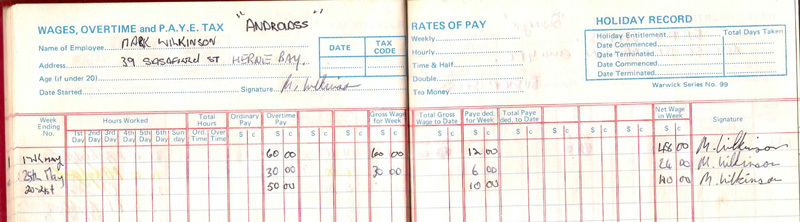 "ANDROIDSS"
WAGES, OVERTIME and P.A.Y.E. TAX
Name of Employee MARK WILKINSON
Address 39 ST HERNE BAY
Age (if under 20)
Date Started Signature M. Wilkinson
DATE TAX CODE
RATES OF PAY
Weekly
Hourly
Time & Half
Double
Tea Money
HOLIDAY RECORD
Holiday Entitlement Total Days Taken
Date Commenced
Date Terminated
Date Commenced
Date Terminated
Warwick Series No. 99
Week Ending No. Hours Worked Total Hours Ordinary Pay Overtime Pay Gross Wage for Week Total Gross Wage to Date Paye ded. for Week Total Paye ded. to Date Net Wage in Week Signature
1st Day 2nd Day 3rd Day 4th Day 5th Day 6th Day Sunday Ord. Time Over Time $ c $ c $ c $ c $ c $ c $ c $ c $ c $ c
May 60 00 60 00 12 00 48 00 M. Wilkinson
25th May 30 00 30 00 6 00 24 00 M. Wilkinson
50 00 10 00 40 00 M. Wilkinson